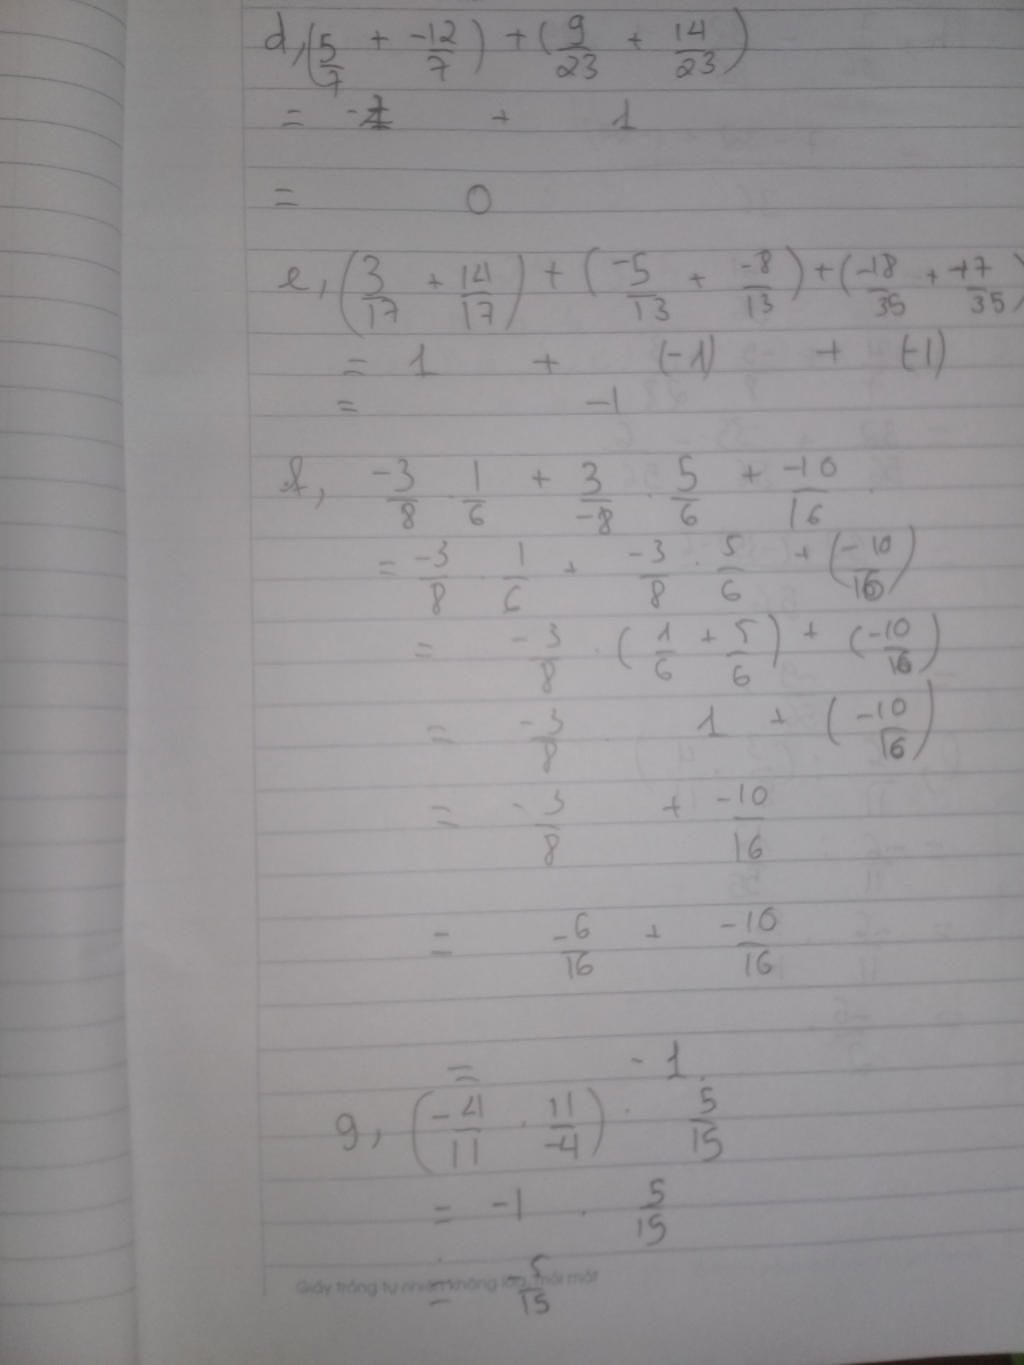 d, (5/7 + -12/7) + (9/23 + 14/23)
= -1 + 1
= 0
e, (3/17 + 14/17) + (-5/13 + -8/13) + (-18/35 + -17/35)
= 1 + (-1) + (-1)
= -1
f, -3/8 . 1/6 + 3/-8 . 5/6 + -10/16
= -3/8 . 1/6 + -3/8 . 5/6 + (-10/16)
= -3/8 . (1/6 + 5/6) + (-10/16)
= -3/8 . 1 + (-10/16)
= -3/8 + -10/16
= -6/16 + -10/16
= -1
g, (-4/11 . 11/-4) . 5/15
= -1 . 5/15
= -5/15
Giấy trắng tự nhiên không lóa, mỏi mắt